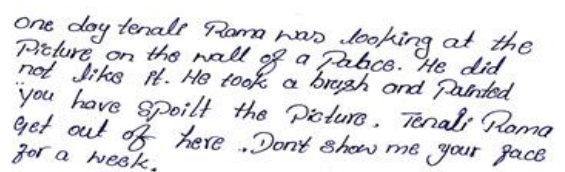 one day tenali Rama was looking at the
Picture on the wall of a Palace. He did
not like it. He took a brush and Painted
"you have spoilt the Picture. Tenali Rama
Get out of here. Dont show me your face
for a week.